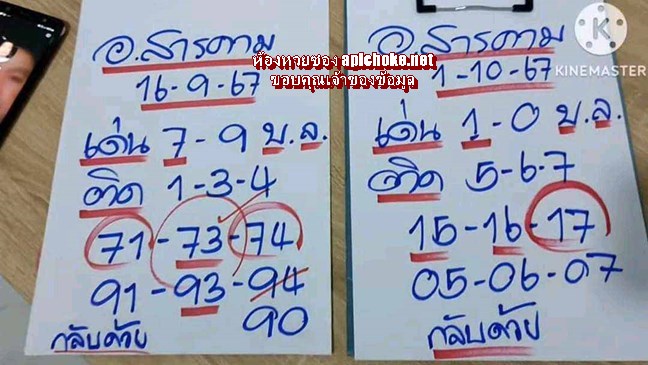 อ.สารคาม
16-9-67
เด่น 7-9 บ.ล.
ติด 1-3-4
71-73-74
91-93-94
90
กลับด้วย
ห้องหวยซอง apichoke.net
ขอบคุณเจ้าของข้อมูล
อ.สารคาม
1-10-67
เด่น 1-0 บ.ล.
ติด 5-6-7
15-16-17
05-06-07
กลับด้วย
KINEMASTER